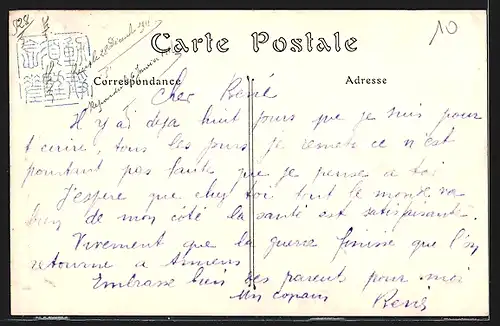 528
10
Carte Postale
Correspondance
Adresse
Cher René
Il y a deja huit jours que je suis pour
t'ecrire, tous les jours je remets ce n'est
pourtant pas faute que je pense a toi
J'espere que chez toi tout le monde va
bien de mon côté la santé est satisfaisante.
Vivement que la guerre finisse que l'on
retourne a Amiens
Embrasse bien tes parents pour moi
Un copain
René